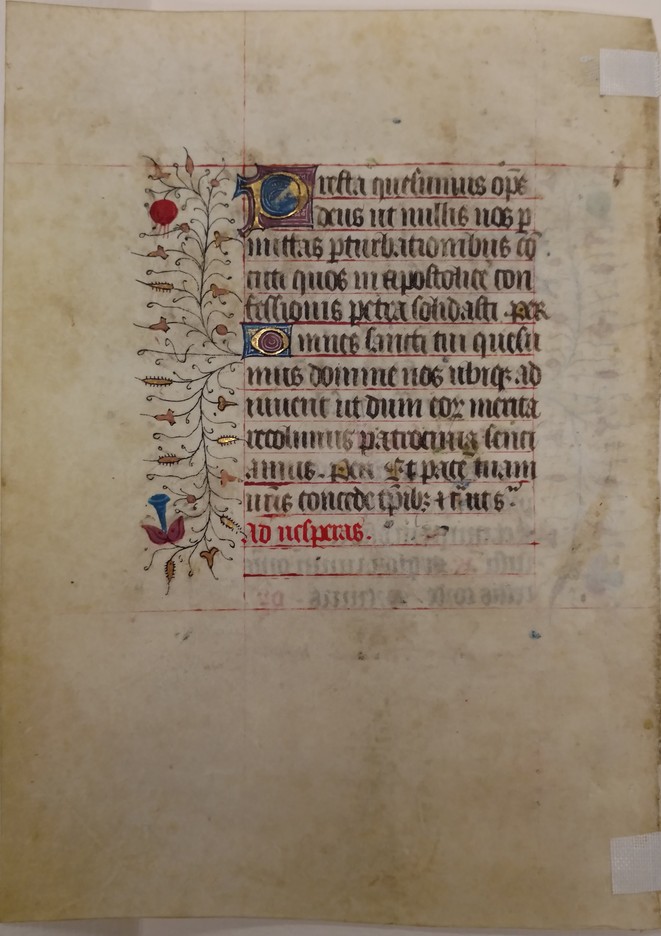 Presta quesumus ope
deus ut nullis nos p
mittas pturbationibus cō
cuti quos in apostolice con
fessionis petra solidasti . per
Omnes sancti tui quesu
mus domine nos ubiq; ad
iuuent ut dum eoꝝ merita
recolimus patrocinia senci
amus . per Et pacē tuam
nr̄is concede tp̄ib; ⁊
ad uesperas .